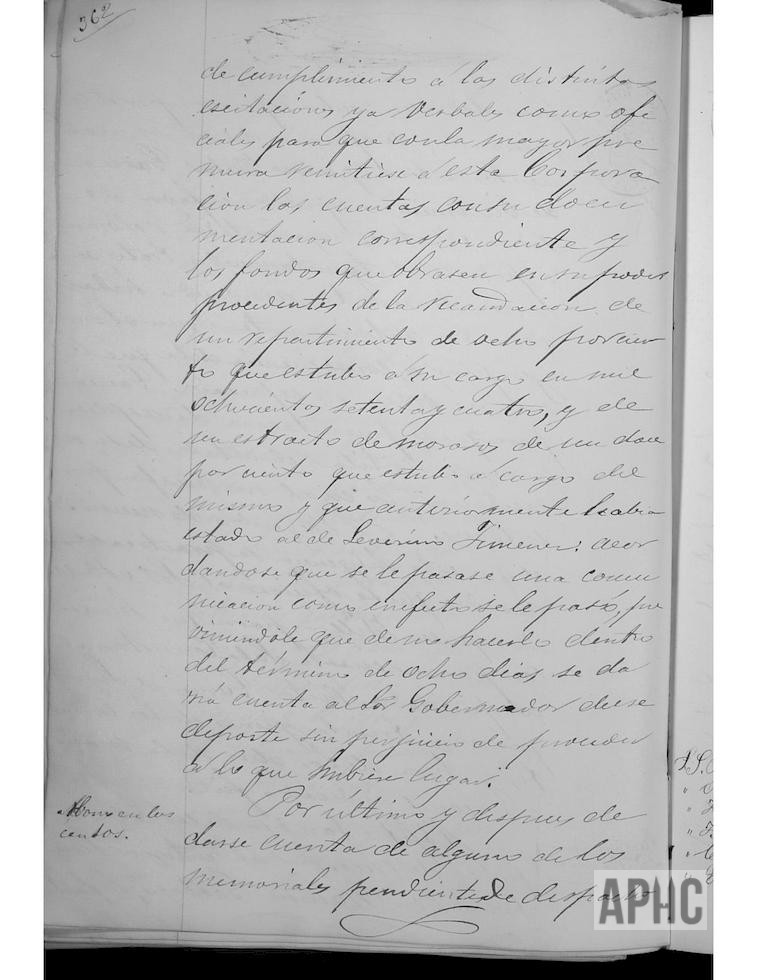 362
de cumplimiento á las distintas
escitaciones ya verbales como ofi
ciales para que con la mayor pre
mura remitiese á esta Corpora
cion las cuentas con su docu
mentacion correspondiente y
los fondos que obrasen en su poder
procedentes de la recaudacion de
un repartimiento de ocho por cien
to que estubo á su cargo en mil
ochocientos setenta y cuatro, y de
un estracto de morosos de un doce
por ciento que estubo á cargo del
mismo y que anteriormente habia
estado al de Severino Jimenez: acor
dandose que se le pasase una comu
nicacion como en efecto se le pasó, pre
viniendole que de no hacerlo dentro
del término de ocho dias se da
ria cuenta al Sor Gobernador de ese
deporte sin perjuicio de proceder
á lo que hubiere lugar.
Por último y despues de
darse cuenta de alguno de los
memoriales pendientes de despacho
en los
centos.
APHC